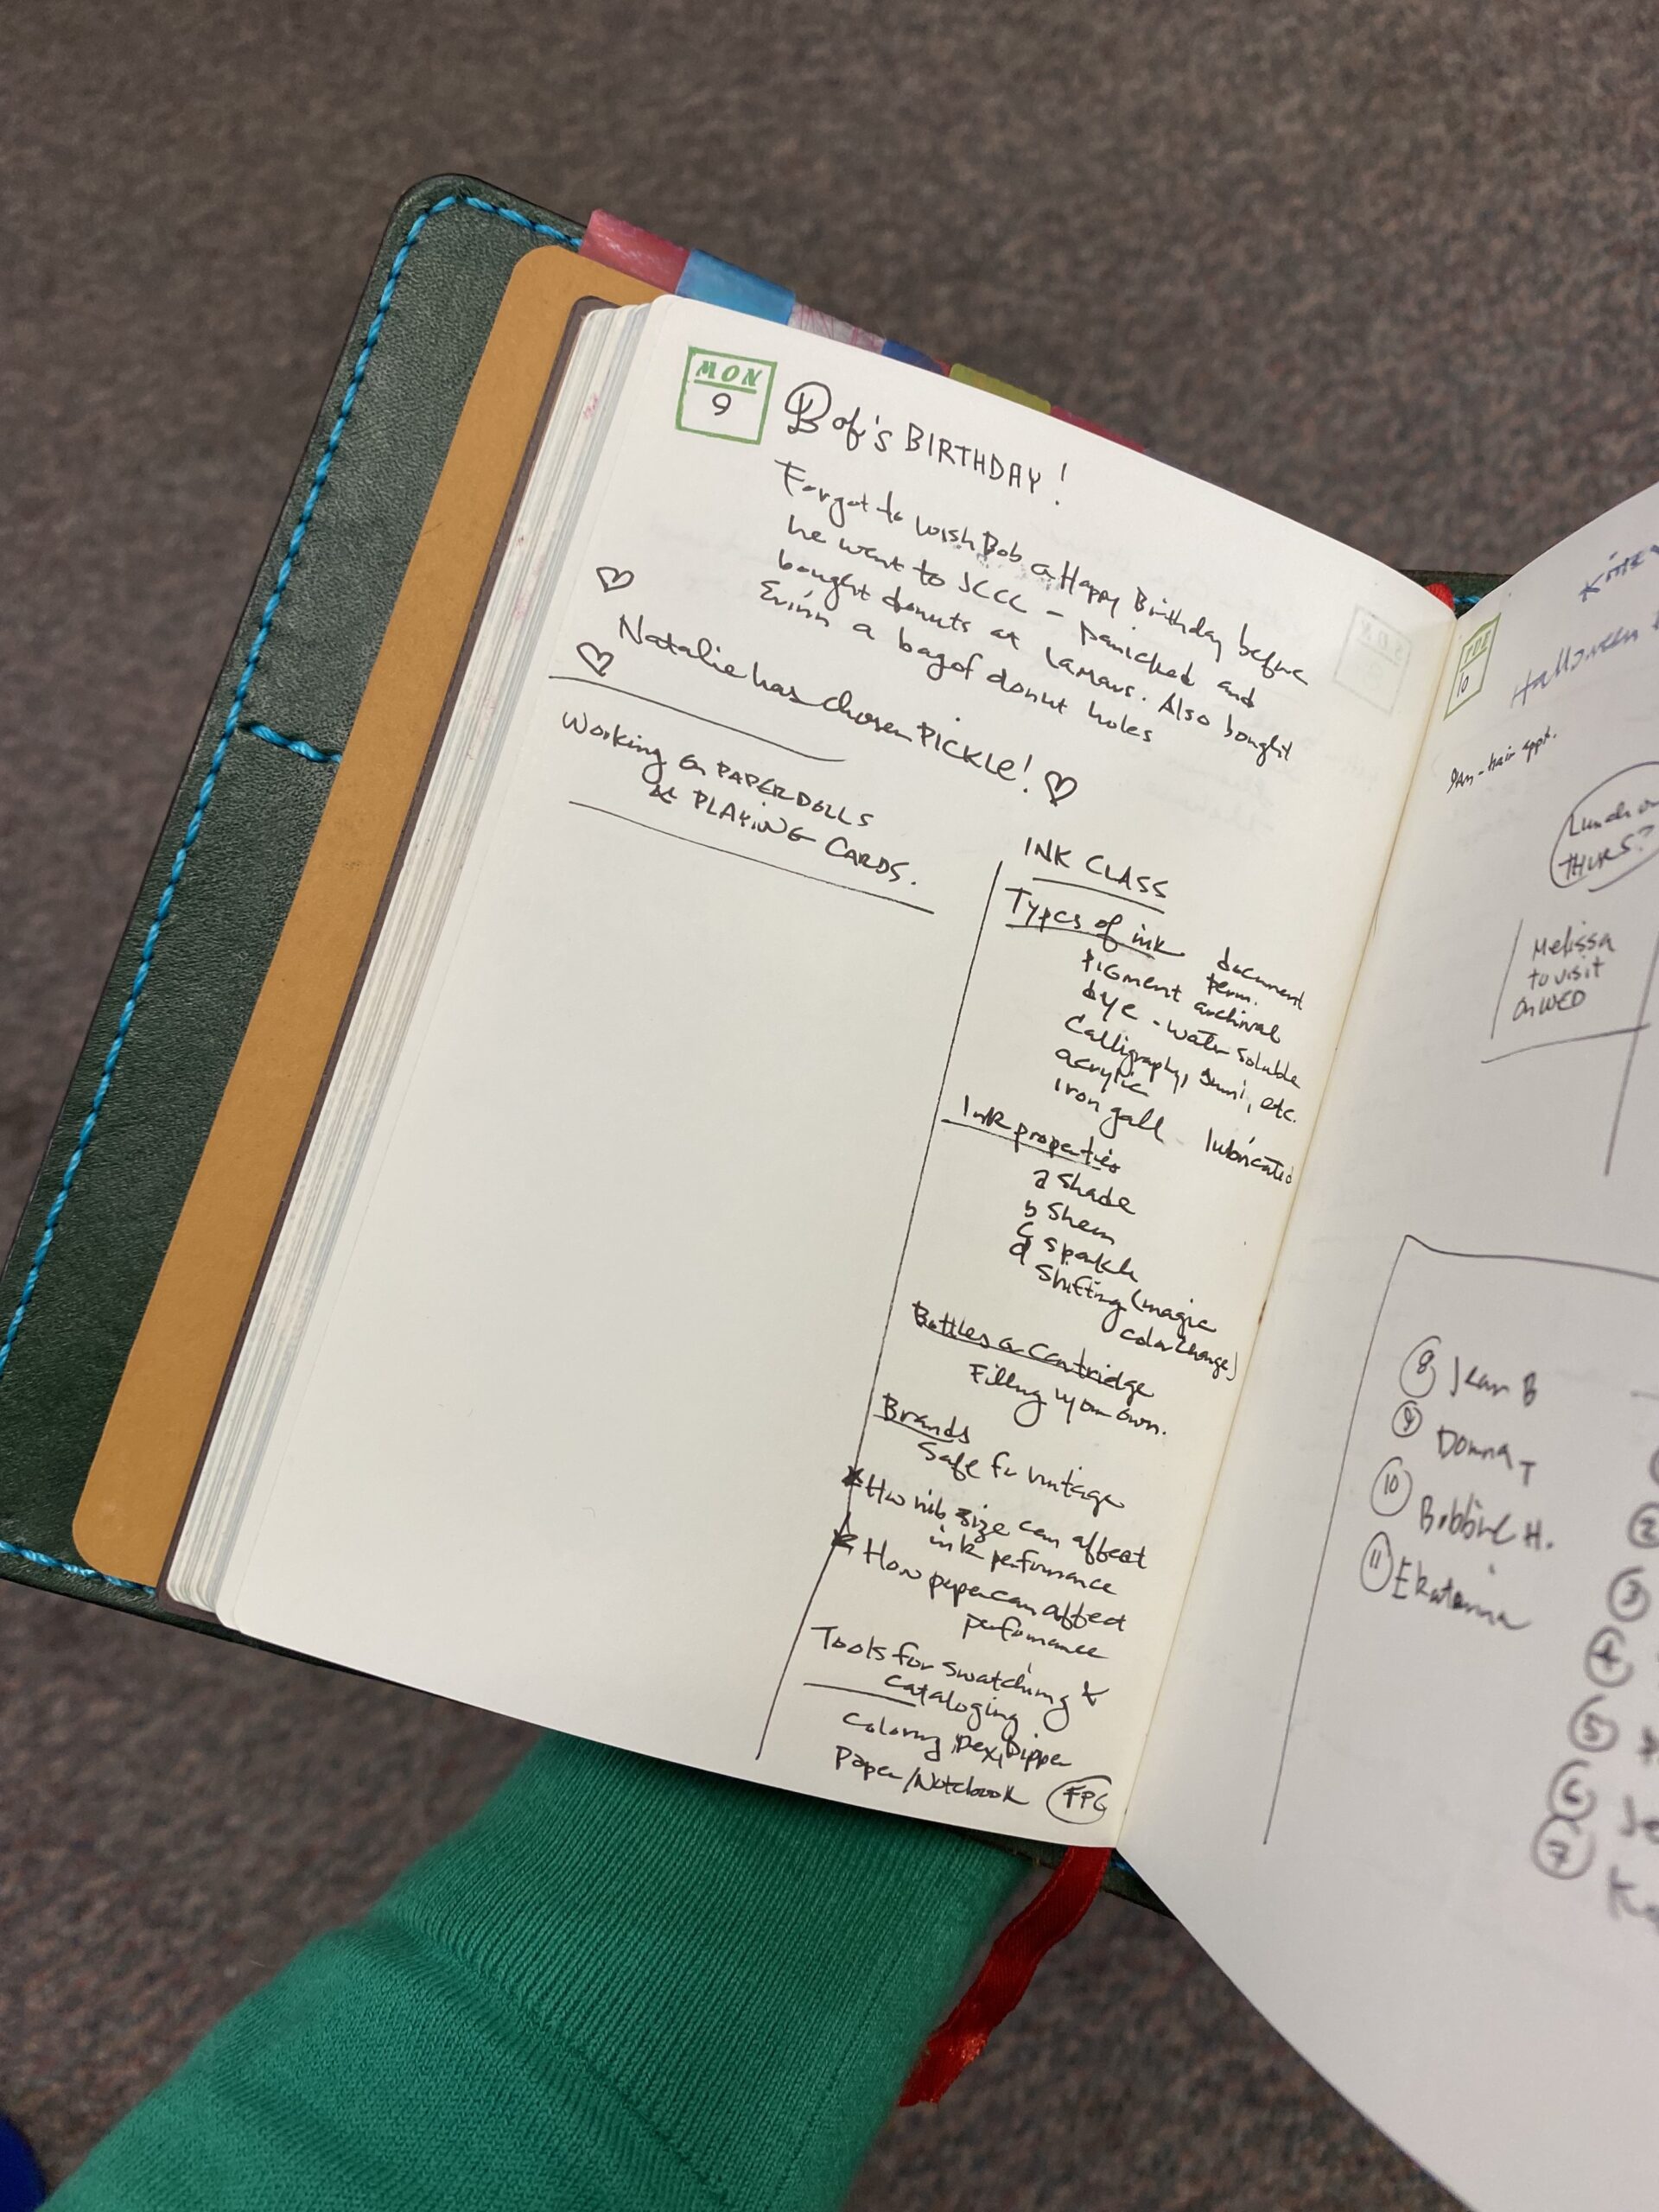 MON
9
Bob's BIRTHDAY!
Forgot to wish Bob a Happy Birthday before
he went to JCCC – panicked and
bought donuts at Lamars. Also bought
Evinn a bag of donut holes
Natalie has chosen PICKLE!
Working on PAPERDOLLS
& PLAYING CARDS.
INK CLASS
Types of ink
document
perm.
PIGMENT archival
dye - water soluble
Calligraphy, Sumi, etc.
acrylic
iron gall - lubricated
Ink properties
a shade
b sheen
c sparkle
d shifting (magic
color change)
Bottles or Cartridge
Filling your own.
Brands
Safe for vintage
How nib size can affect
ink performance
How paper can affect
performance
Tools for swatching &
Cataloging
Coloring, Dex, Dipper
Paper/Notebook FPG
TUE
10
Halloween
hair appt.
Lunch on
THURS?
Melissa
to visit
on WED
8 Jean B
9 Donna T
10 Bobbie H.
11 Ekaterina
2
3
4
5
6
7